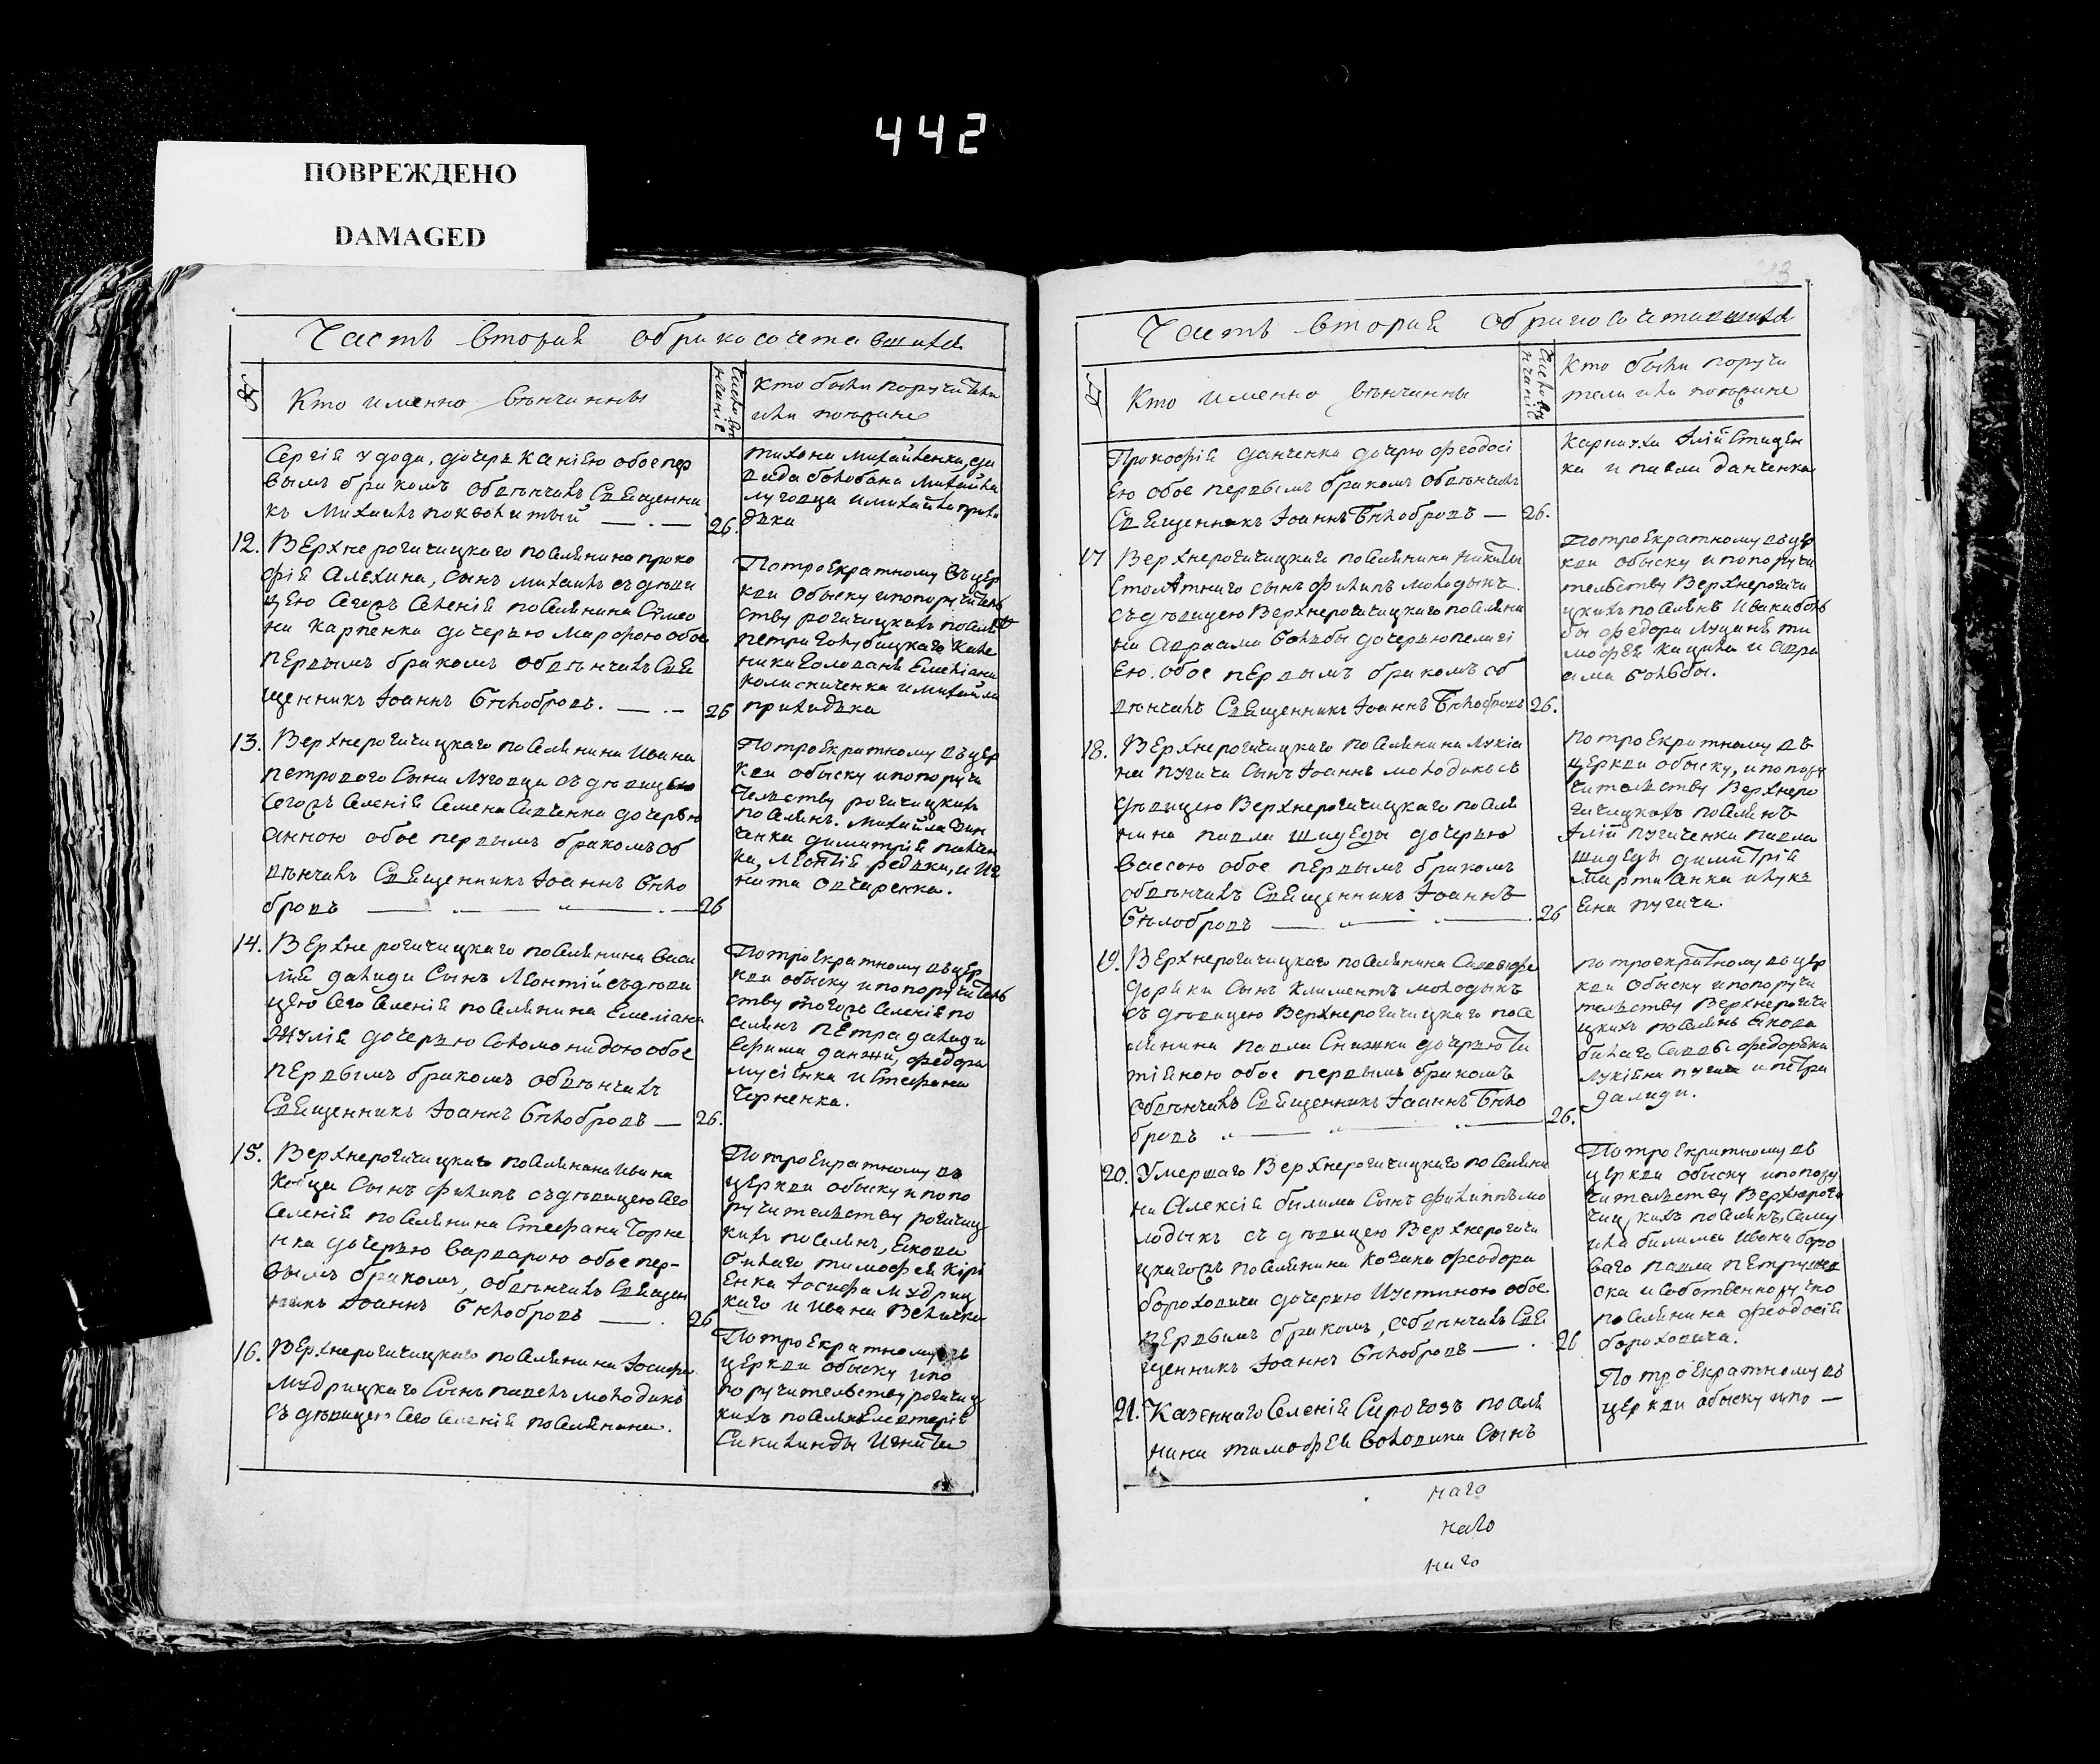 442
ПОВРЕЖДЕНО
DAMAGED
Часть вторая о бракосочетавшихся
Кто именно венчанны
Число венчания
Кто были поручители
или поезжане
Сергія удода, дочерь Ксенію обое пер
вымъ бракомъ обвѣнчалъ Священни
къ Михаилъ 26.
Тихона Михайленка, да
вида болобана Михайла
луговца и михайла прихо
дька
12. Верхнерогачицкаго поселянина проко
фія Алехина, сынъ михаилъ съ дѣви
цею сегожъ селенія поселянина Симео
на Карпенка дочерью марфою обое
первымъ бракомъ обвѣнчалъ Свя
щенникъ Іоаннъ Бѣлобровъ. 26
По троекратному въ цер
кви обыску и по поручитель
ству рогачицкихъ поселянъ
петра голубицкаго
Емеліана
колисниченка и михайла
приходька
13. Верхнерогачицкаго поселянина Ивана
петрового сына Луговца съ дѣвицею
сегожъ селенія семена савченка дочерью
анною обое первымъ бракомъ об
вѣнчалъ Священникъ Іоаннъ Бѣло
бровъ 26
По троекратному въ цер
кви обыску и по поручи
тельству рогачицкихъ
поселянъ. михайла
ченка димитрія
ка, Леонтія редька, и Иг
ната овчаренка.
14. Верхнерогачицкаго поселянина васи
лія далиди сынъ Леонтій съ дѣви
цею сего селенія поселянина Емеліана
жулія дочерью соломонидою обое
первымъ бракомъ обвѣнчалъ
Священникъ Іоаннъ Бѣлобровъ 26.
По троекратному въ цер
кви обыску и по поручитель
ству тогожъ селенія по
селянъ петра далиди
Ефима федора
мусіенка и Стефана
Чорненка.
15. Верхнерогачицкаго поселянина ивана
Кобца сынъ филипъ съ дѣвицею сего
селенія поселянина Стефана Чорне
нка дочерью варварою обое пер-
вымъ бракомъ, обвѣнчалъ Священ
никъ Іоаннъ Бѣлобровъ 26
По троекратному въ
церкви обыску и по по
ручительству рогачиц
кихъ поселянъ, Якова
билаго тимофея Кірі
енка Іосифа мудриц
каго и ивана Величка
16. Верхнерогачицкаго поселянина Іосифа
мудрицкаго сынъ павелъ молодикъ
съ дѣвицею сего селенія поселянина.
По троекратному въ
церкви обыску и по
поручительству рогачиц
кихъ поселянъ Елевтерія
Сикиринды Игната
Часть вторая о бракосочетавшихся
Кто именно венчанны
Число венчания
Кто были поручи
тели или поезжане
Прокофія данченка дочерю феодосі
ею обое первымъ бракомъ обвѣнчалъ
Священникъ Іоаннъ Бѣлобровъ — 26.
Карпизка Илій Стицен
ка и павла данченка
17 Верхнерогачицкаго поселянина никиты
Столѣтняго сынъ филипъ молодыкъ
съ дѣвицею Верхнерогачицкаго поселяни
на Авраама Бользбы дочерью пелагі
ею. обое первымъ бракомъ об
вѣнчалъ Священникъ Іоаннъ Бѣлобровъ 26.
По троекратному въ цер
кви обыску и по поручи
тельству Верхнерогачи
цкихъ поселянъ ти
мофея кацила и авра
ама
18. Верхнерогачицкаго поселянина лукіа
на пугача сынъ Іоаннъ молодикъ съ
дѣвицею Верхнерогачицкаго поселя
нина павла шидеды дочерью
вассою обое первымъ бракомъ
обвѣнчалъ Священникъ Іоаннъ
Бѣлобровъ 26
по троекратному въ
церкви обыску, и по пору
чительству Верхнеро
гачицкихъ поселянъ
Илій пугаченка павла
шидеды димитрія
мартиянка и лукъ
яна пугача.
19. Верхнерогачицкаго поселянина Саввы фе
дорька сынъ климентъ молодыкъ
съ дѣвицею Верхнерогачицкаго посе
лянина павла Снижки дочерью та
тіяною обое первымъ бракомъ
обвѣнчалъ Священникъ Іоаннъ Бѣло
бровъ 26.
по троекратному въ цер
кви обыску и по поручи
тельству Верхнерогачи
цкихъ поселянъ Якова
билаго Саввы федорька
лукіяна пугача и петра
далиди.
20. Умершаго Верхнерогачицкаго поселяни
на Алексія билима сынъ филиппъ мо
лодыкъ съ дѣвицею Верхнерогачи
цкагожъ поселянина козака феодора
бороховича дочерью Иустиною обое
первымъ бракомъ, обвѣнчалъ Свя
щенникъ Іоаннъ Бѣлобровъ — 26
По троекратному въ
церкви обыску и по пору
чительству Верхнерога
чицкихъ поселянъ, Саму
ила билима ивана боро
ваго павла
ска и собственноручно
поселянина феодосія
бороховича.
21. Казеннаго селенія Сирогозъ поселя
нина тимофея Володина сынъ
По троекратному въ
церкви обыску и по —
наго
наго
наго